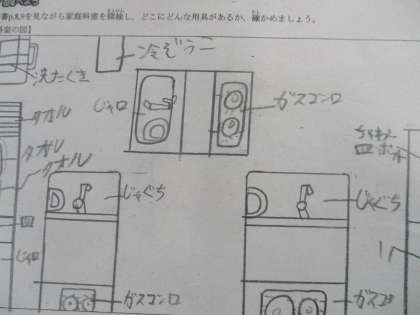 書p.8,9を見ながら家庭科室を探検し、どこにどんな用具があるか、確かめましょう。
室の図】
冷ぞうこ
洗たくき
じゃ口
ガスコンロ
タオル
タオル
タオル
ちゃわん
じゃぐち
じゃぐち
皿
じゃ口
ガスコンロ
ガスコ